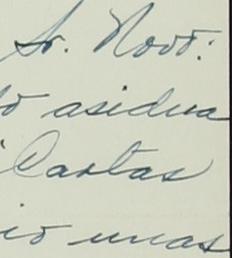 Sr. Novo:
asidua
Cartas
unas